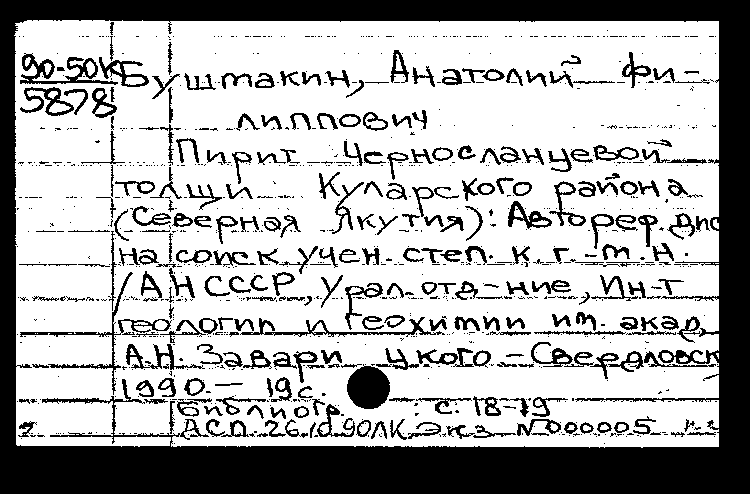 90-50К Буштакин, Анатолий Фи-
5878
липпович
Пирит Черносланцевой
толщи Куларского района
(Северная Якутия): Автореф. дис
на соиск. учен. степ. к. г.-м.н.
/АН СССР, Урал. отд-ние, Ин-т
геологии и геохимии им. акад.
А.Н. Завари цкого - Свердловск
1990. - 19 с.
Библиогр. : с. 18-19
ДСП. 26.10.90 ЛК Экз N 000005